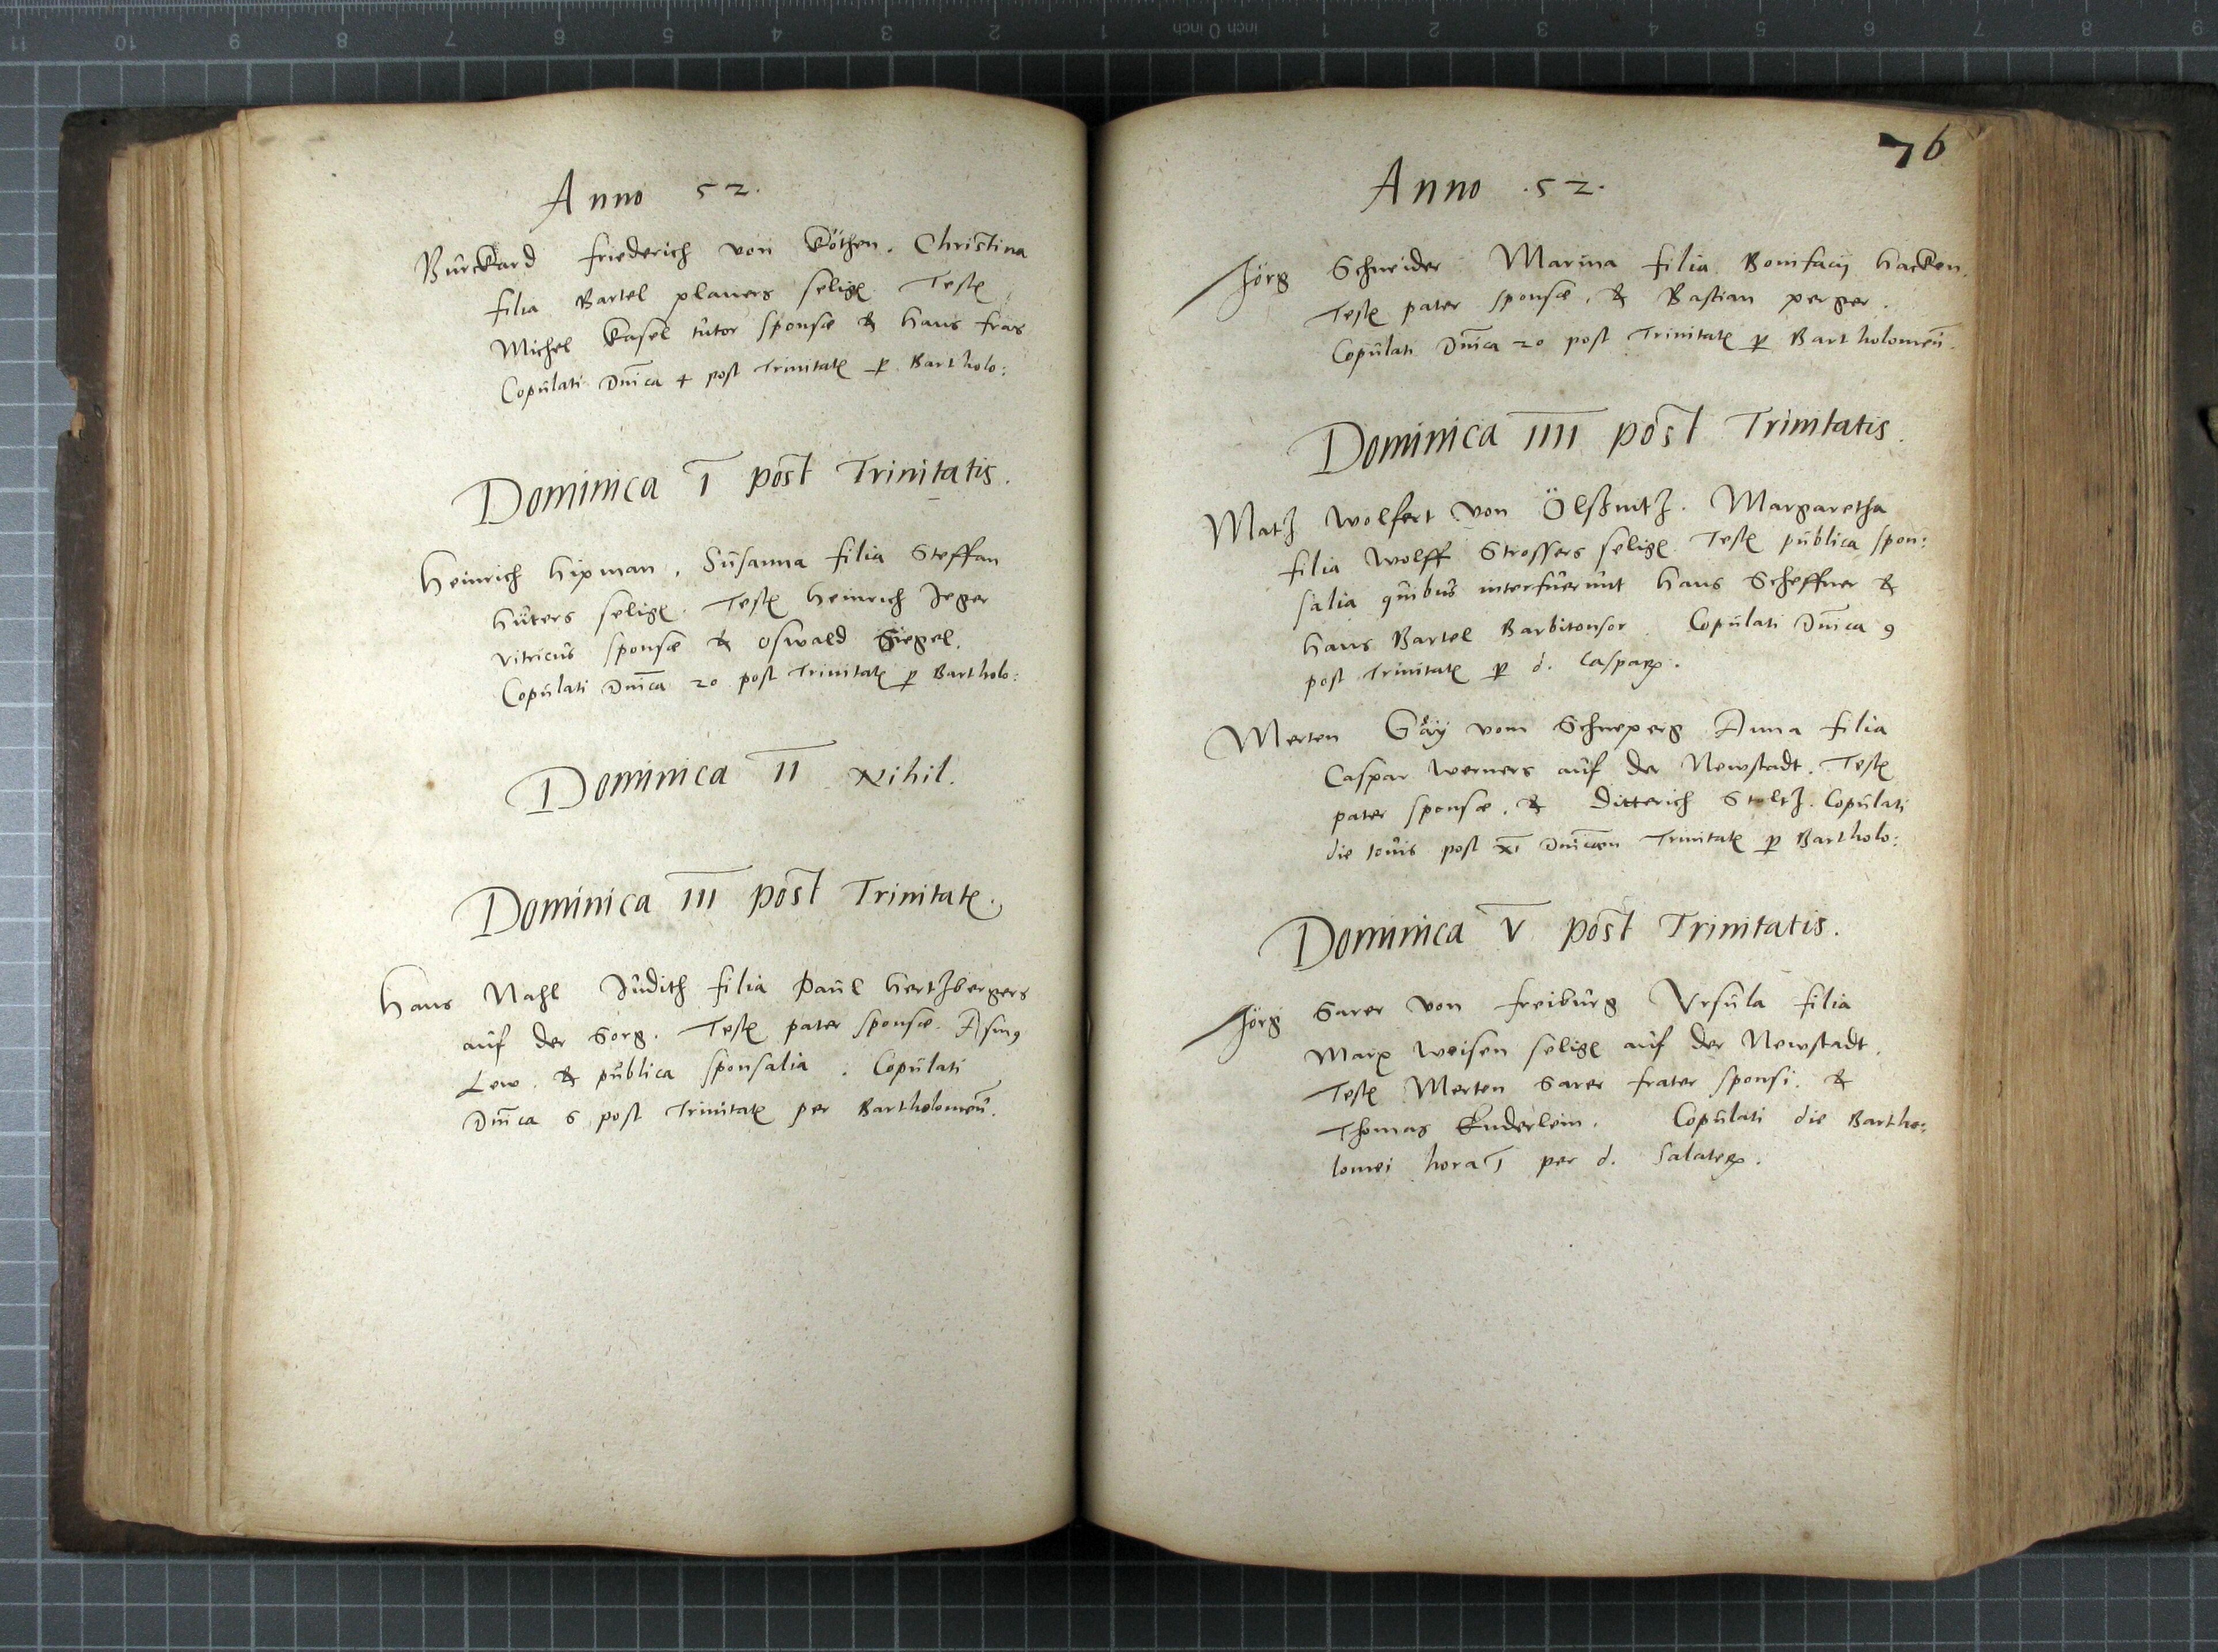 Anno 52.
Burckard friederich von Köthen. Christina
filia Bartel plauers selig. Testes
Michel Kasel tutor sponsæ & hans fras
Copulati Dnica 4 post Trinitatis p Bartholo:
Dominica I post Trinitatis.
Heinrich hipman, Susanna filia Steffan
hüters selig. Testes heinrich Jeger
vitricus sponsæ & Oswald Siegel.
Copulati Dnica 20 post Trinitatis p Bartholo:
Dominica II Nihil.
Dominica III post Trinitatis.
Hans Nahl Judith filia Paul hertzbergers
auf der Sorg. Testes pater sponsæ. Asmus
Lew. & publica sponsalia. Copulati
Dnica 6 post Trinitatis per Bartholomeū.
76
Anno .52.
Jörg Schneider Marina filia Bonifacij hacken.
Testes pater sponsæ, & Bastian perger.
Copulati Dnica 20 post Trinitatis p Bartholomeū.
Dominica IIII post Trinitatis.
Matz Wolfert von Ölssnitz. Margaretha
filia Wolff Strossers selig. Testes publica spon:
salia quibus interfuerunt hans Scheffner &
hans Bartel Barbitonsor. Copulati Dnica 9
post Trinitatis p d. Casparum.
Merten Gäy vom Schneperg Anna filia
Caspar werners auf der Newstadt. Testes
pater sponsæ, & Ditterich Stoltz. Copulati
die Iouis post XI Dnicam Trinitatis p Bartholo:
Dominica V post Trinitatis.
Jörg Sarer von freiburg Vrsula filia
Marx weisen selig auf der Newstadt.
Testes Merten Sarer frater sponsi. &
Thomas Enderlein. Copulati die Bartho:
lomei hora I per d. Salaterum.
inch 0 inch
11 10 9 8 7 6 5 4 3 2 1 1 2 3 4 5 6 7 8 9